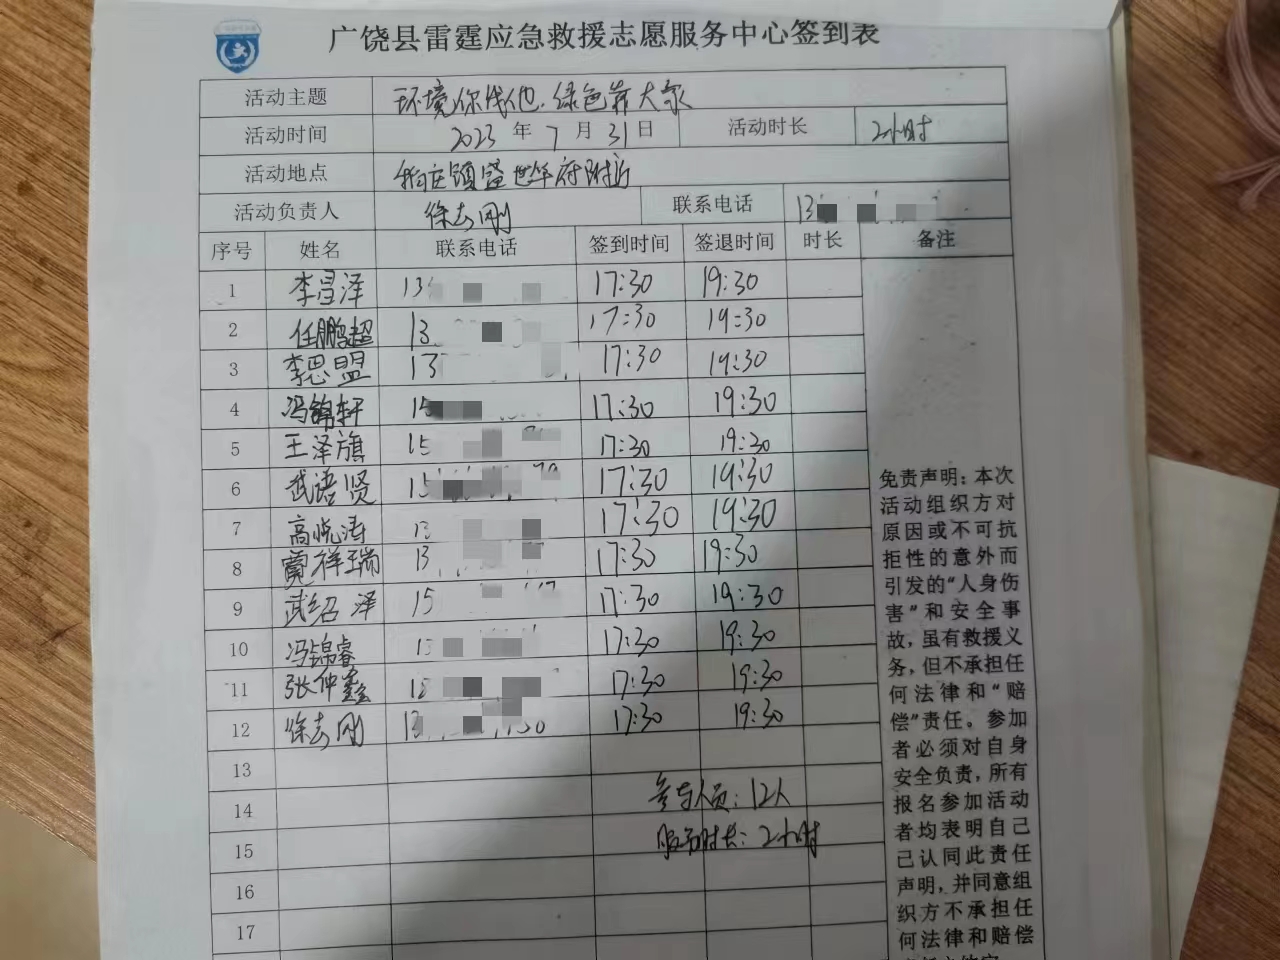 广饶县雷霆应急救援志愿服务中心签到表
活动主题 环境你我他.绿色靠大家
活动时间 2023 年 7 月 31 日 活动时长 2小时
活动地点 镇盛世华府附近
活动负责人 徐志刚 联系电话 13
序号 姓名 联系电话 签到时间 签退时间 时长 备注
1 李昌泽 13 17:30 19:30
2 任鹏超 13 17:30 19:30
3 李思盟 13 17:30 19:30
4 冯锦轩 15 17:30 19:30
5 王泽旗 15 17:30 19:30
6 武语贤 15 17:30 19:30
7 高悦涛 13 17:30 19:30
8 祥瑞 13 17:30 19:30
9 武绍泽 15 17:30 19:30
10 冯锦睿 17:30 19:30
11 张仲鑫 17:30 19:30
12 徐志刚 13 17:30 19:30
13
14 参与人员:12人
15 服务时长:2小时
16
17
免责声明:本次
活动组织方对
原因或不可抗
拒性的意外而
引发的“人身伤
害”和安全事
故,虽有救援义
务,但不承担任
何法律和“赔
偿”责任。参加
者必须对自身
安全负责,所有
报名参加活动
者均表明自己
已认同此责任
声明,并同意组
织方不承担任
何法律和赔偿